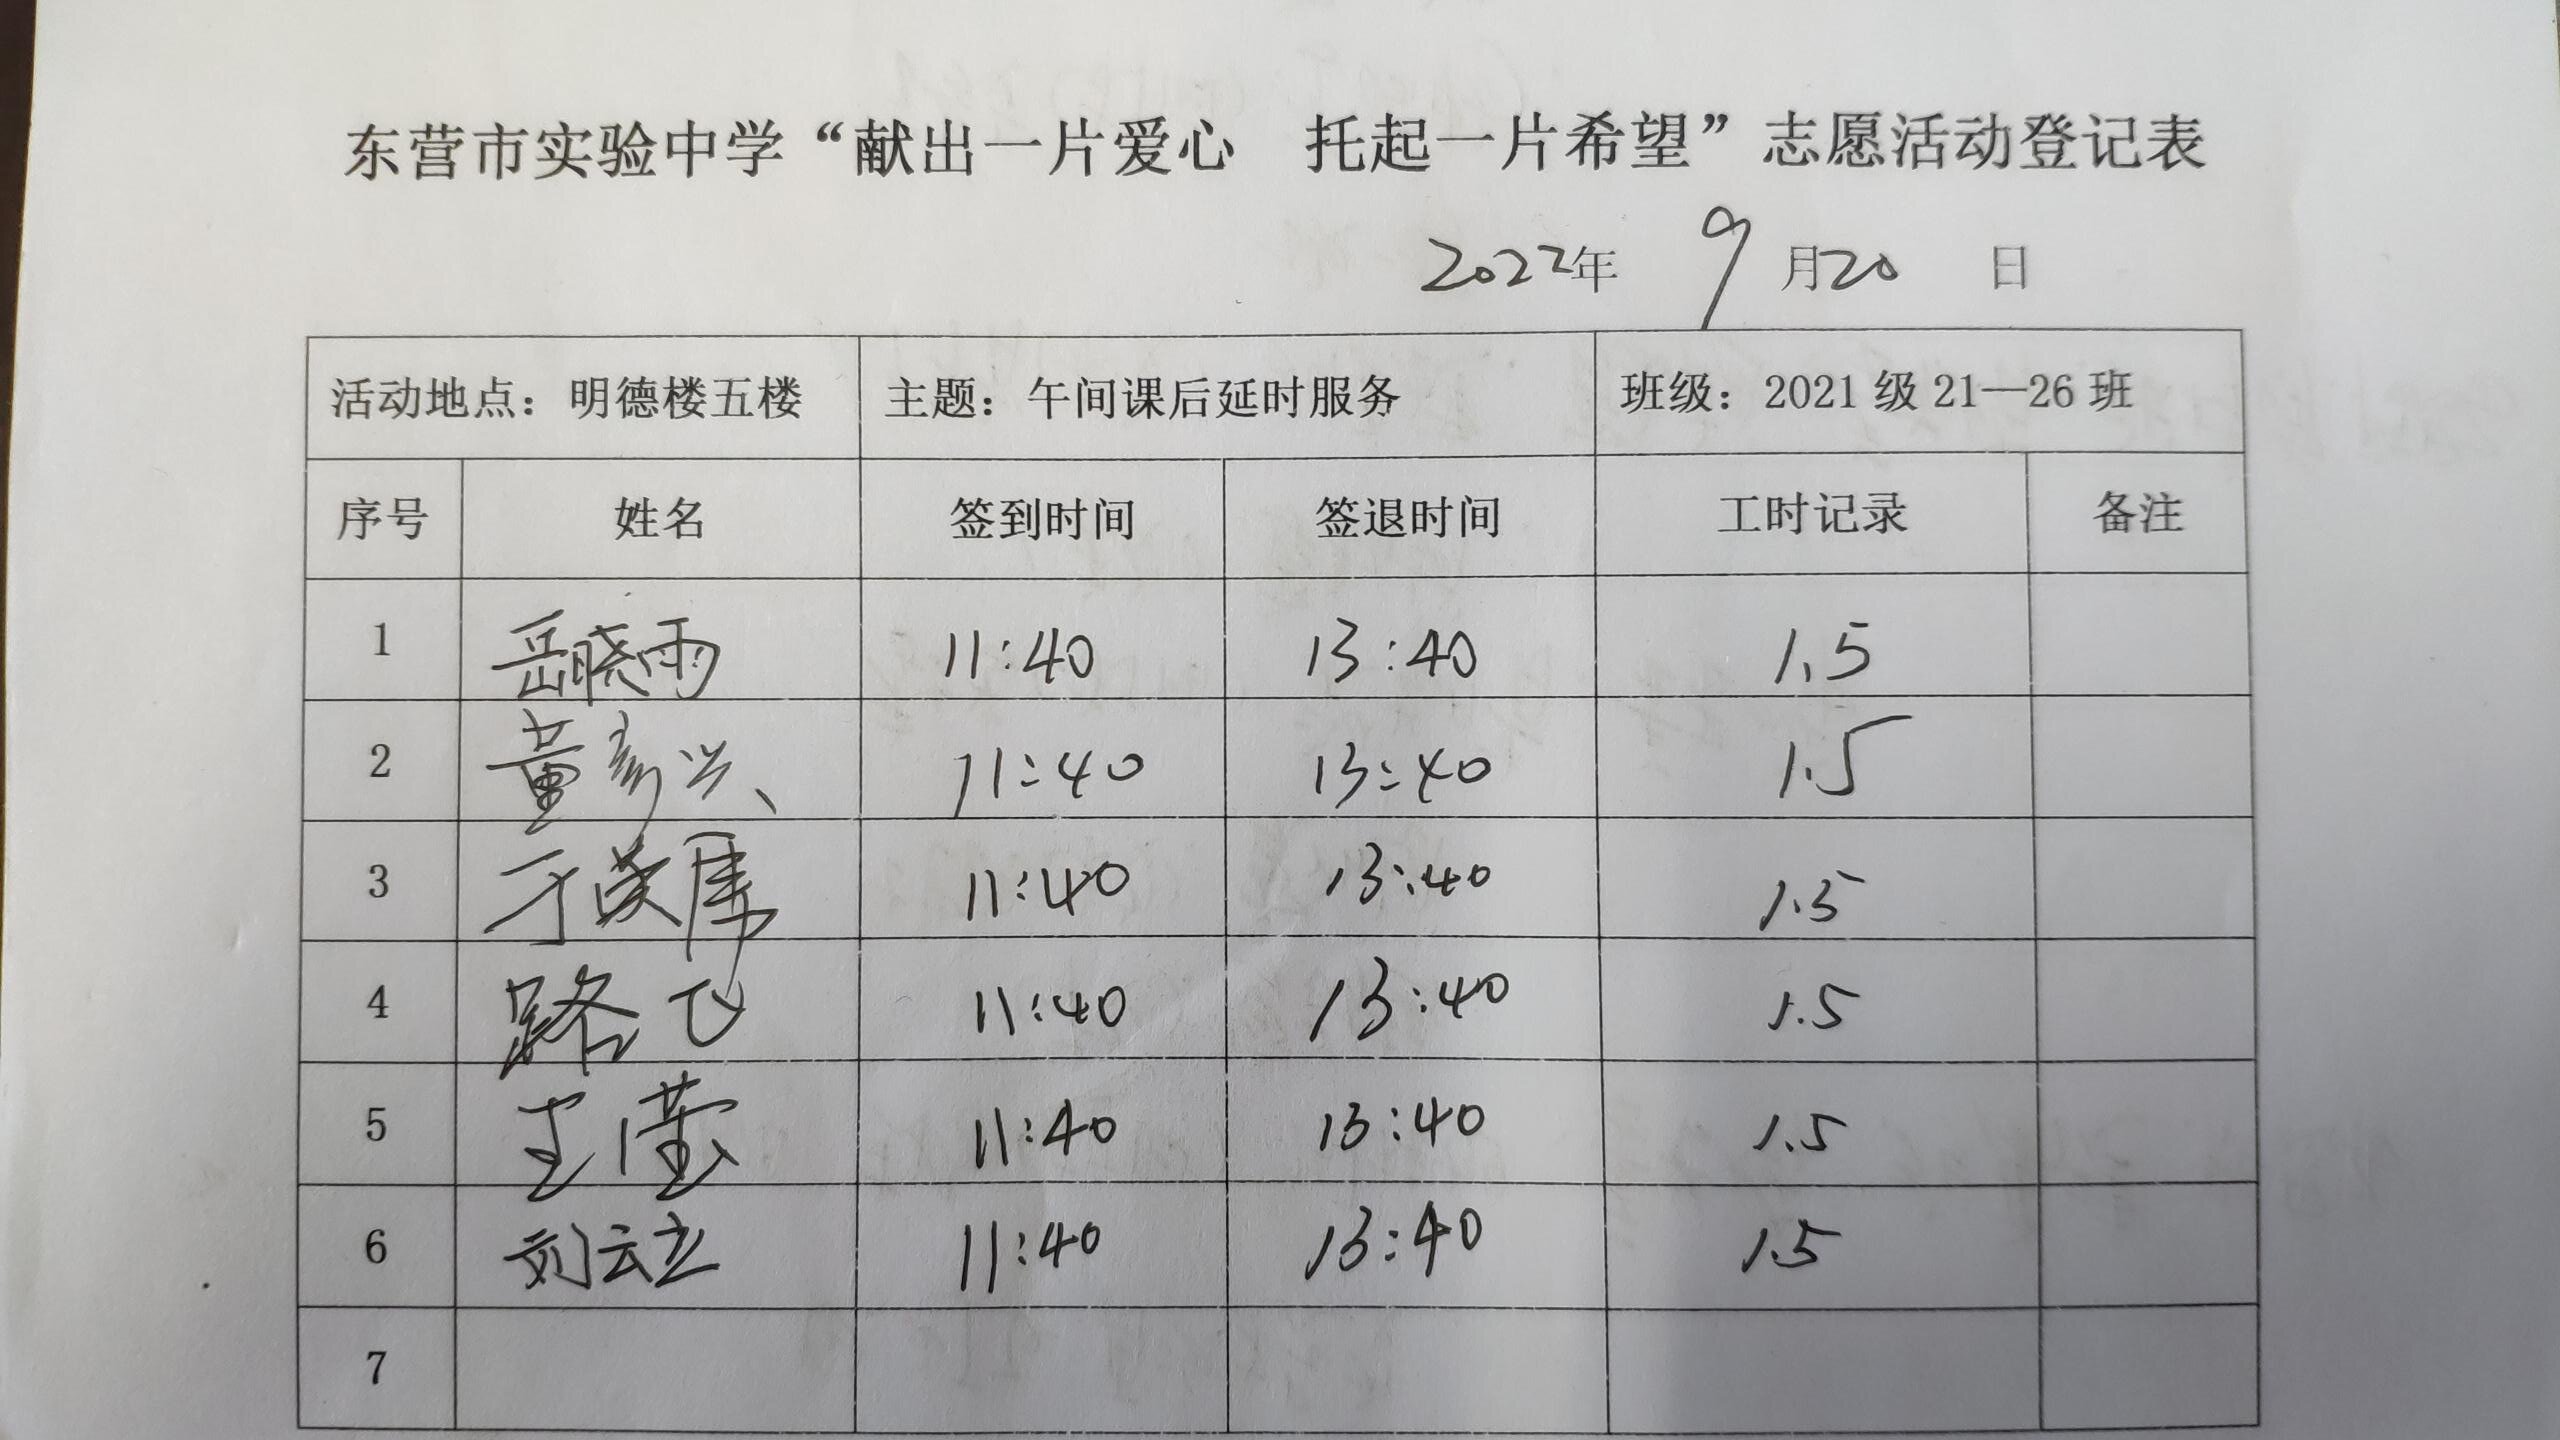 东营市实验中学“献出一片爱心 托起一片希望”志愿活动登记表
2022年 9月20日
活动地点：明德楼五楼 主题：午间课后延时服务 班级：2021级21—26班
序号 姓名 签到时间 签退时间 工时记录 备注
1 岳晓雨 11:40 13:40 1.5
2 董彦兴 11:40 13:40 1.5
3 于 11:40 13:40 1.5
4 路飞 11:40 13:40 1.5
5 王莹 11:40 13:40 1.5
6 刘云立 11:40 13:40 1.5
7